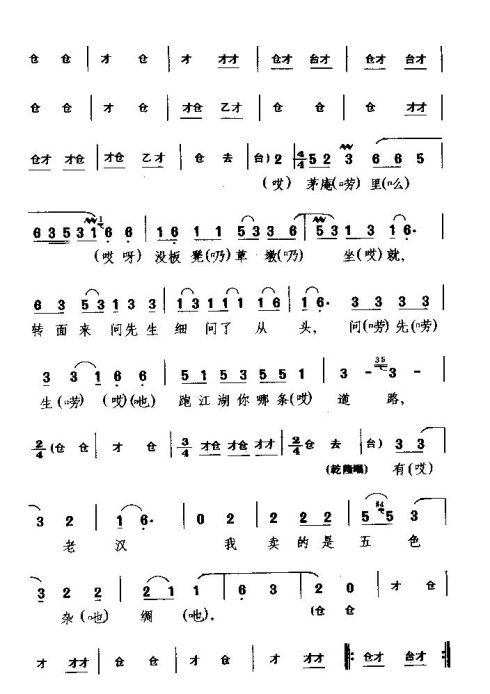 仓 仓 | 才 仓 | 才 才才 | 仓才 台才 | 仓才 台才 |
仓 仓 | 才 仓 | 才仓 乙才 | 仓 仓 | 仓 才才 |
仓才 才仓 | 才仓 乙才 | 仓 去 | 台) 2 | 4/4 5 2 3 6 6 5
(哎) 茅庵(唠) 里(么)
6 3 5 3 1 6 6 | 1 6 1 1 5 3 3 6 | 5 3 1 3 1 6· |
(哎 呀) 没板 凳(乃) 草 墩(乃) 坐(哎)就,
6 3 5 3 1 3 3 | 1 3 1 1 1 6 1 | 1 6· 3 3 3 3 |
转 面 来 问先生 细 问了 从 头, 问(唠)先(唠)
3 3 1 6 6 | 5 1 5 3 5 5 1 | 3 - 3 - |
生(唠) (哎)(吔) 跑江湖你哪条(哎) 道 路,
2/4 (仓 仓 | 才 仓 | 3/4 才仓 才仓 才才 | 2/4 仓 去 | 台) 3 3 |
(乾隆唱) 有(哎)
3 2 | 1 6· | 0 2 | 2 2 2 | 5 5 3 |
老 汉 我 卖 的 是 五 色
3 2 2 | 2 1 1 | 6 3 | 2 0 | 才 仓 |
杂(吔) 绸 (吔), (仓 仓
才 才才 | 仓 仓 | 才 仓 | 才 才才 |: 仓才 台才 :|